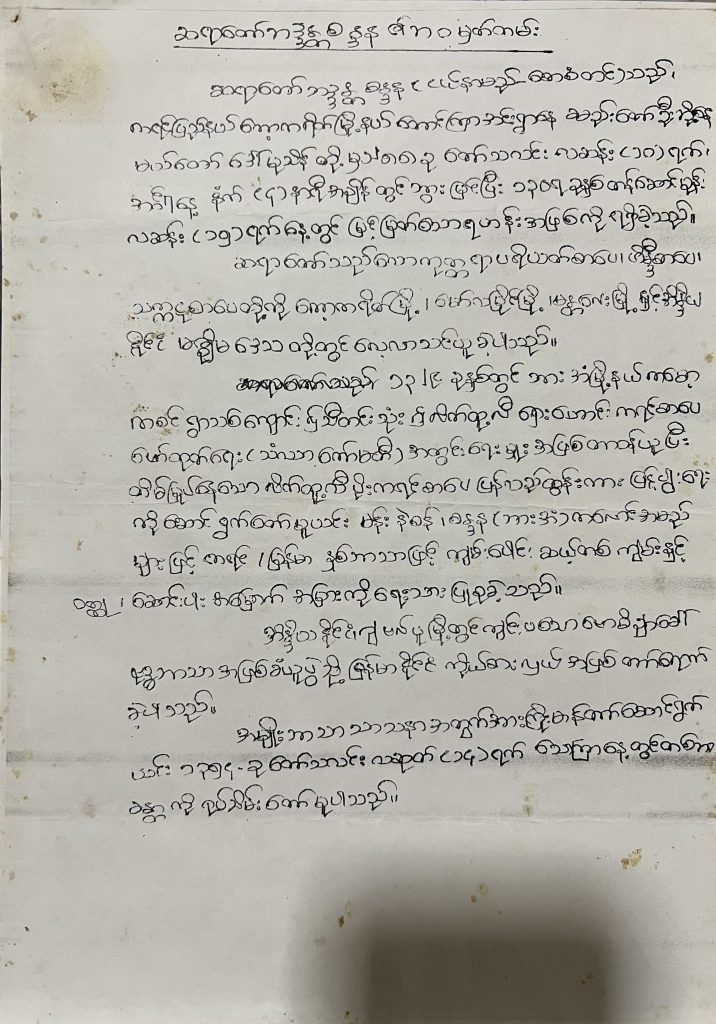 ဆရာတော်ဘဒ္ဒန္တစန္ဒန ၏ဘဝမှတ်တမ်း
ဆရာတော် ဘဒ္ဒန္တ စန္ဒန (ငယ်နာမည် စောစံတင်) သည်၊
ကရင်ပြည်နယ် ကော့ကရိတ်မြို့နယ် ကောင်းကြာအင်းရွာနေ
မယ်တော် ဒေါ်မူသိန် တို့မှ ခု တော်သလင်း လဆန်း (၁၀) ရက်၊
အင်္ဂါနေ့ နံနက် (၄) နာရီအချိန် တွင် ဘွားမြင်ပြီး ၁၃၀၇ ခုနှစ် တန်ဆောင်မုန်း
လဆန်း (၁၅) ရက်နေ့တွင် မြင့်မြတ်သောရဟန်းအဖြစ်ကို ရရှိခဲ့သည်။
ဆရာတော်သည် လောကုတ္တရာ ပရိယတ်စာပေ၊ ဟိန္ဒီစာပေ၊
သက္ကဋစာပေတို့ကို ကော့ကရိတ်မြို့၊ မော်လမြိုင်မြို့၊ မန္တလေးမြို့ နှင့် အိန္ဒိယ
နိုင်ငံ မဇ္ဈိမ ဒေသ တို့တွင် လေ့လာသင်ယူ ခဲ့ပါသည်။
ဆရာတော်သည် ခုနှစ်တွင် ဘားအံမြို့နယ် ကမော့
ကစင် ရွာသစ်ကျောင်း ၌ သီတင်းသုံး ၍ လိက်ထူ့လီ ရှေးဟောင်း ကရင်စာပေ
ဖော်ထုတ်ရေး အတွင်းရေးမှူး အဖြစ် တာဝန်ယူပြီး
တိမ်မြုပ်နေသော လိက်ထူ့လီ ကရင်စာပေ ပြန်လည်ထွန်းကား ပြန့်ပွားရေး
ကို ဆောင်ရွက်တော်မူယင်း မန်း စန္ဒန (ဘားအံ) ကလောင်အမည်
များဖြင့် ကရင်/မြန်မာ နှစ်ဘာသာဖြင့် ကျမ်းပေါင်း ဆယ့်တစ်ကျမ်းနှင့်
ဝတ္ထု၊ ဆောင်းပါး အမြောက် အမြားကို ရေးသားပြုစုခဲ့သည်။
အိန္ဒိယနိုင်ငံ၊ မြို့တွင် ကျင်းပသော
ဗုဒ္ဓဘာသာ အဖြစ်ခံယူပွဲသို့ မြန်မာနိုင်ငံ ကိုယ်စားလှယ် အဖြစ် တက်ရောက်
ခဲ့ပါသည်။
အမျိုးဘာသာ သာသနာ အတွက် အားကြိုးမာန်တက် ဆောင်ရွက်
ယင်း ၁၃၅၄-ခု တော်သလင်း လဆုတ် (၁၄) ရက် သောကြာနေ့တွင်
ခန္ဓာ ကို ရုပ်သိမ်းတော်မူပါသည်။